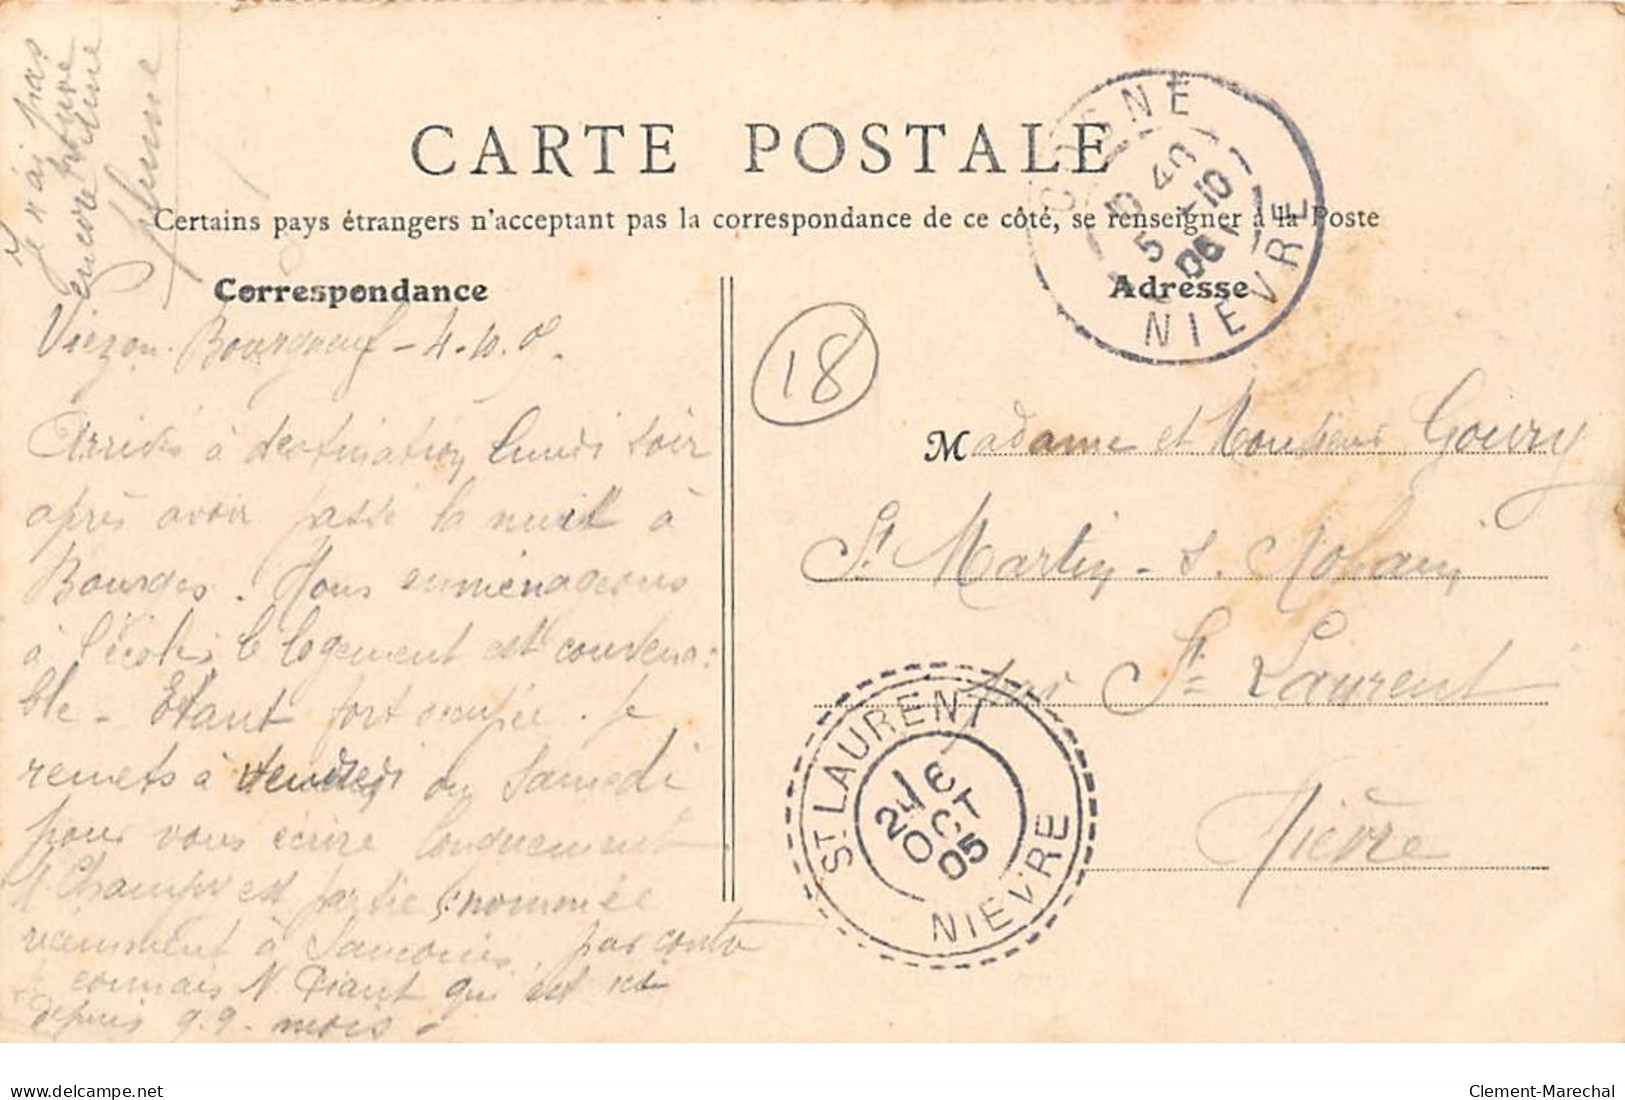 J'ai n'ai pas
trouvé
encore
plume
CARTE POSTALE
Certains pays étrangers n'acceptant pas la correspondance de ce côté, se renseigner à la Poste
Correspondance
Adresse
COSNE
10 40
5 -10
05
NIEVRE
Vierzon-Bourgneuf - 4-10.05.
18
Arrivés à destination lundi soir
après avoir passé la nuit à
Bourges. Nous emménageons
à l'école, le logement est convena-
ble - Etant fort occupée. je
remets à vendredi ou Samedi
pour vous écrire longuement
M. est partie, nommée
récemment à par contre
connais M. qui est ici
depuis q.q. mois.
Madame et Monsieur Goury
St Martin - s. Nohain
par St Laurent
Nièvre
ST LAURENT
21 6
OCT
05
NIEVRE
www.delcampe.net
Clement-Marechal